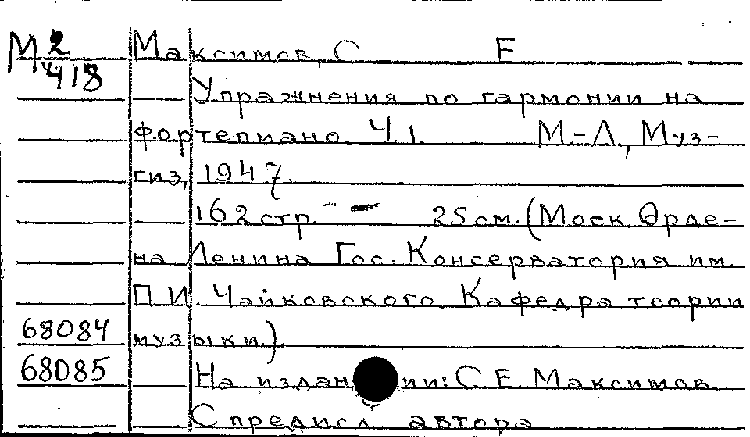 М2 Максимов, С Е
418
Упражнения по гармонии на
фортепиано Ч 1. М-Л, Муз-
гиз, 1947.
162 стр. — 25 см. (Моск. Орде-
на Ленина Гос. Консерватория им.
П.И. Чайковского Кафедра теории
68084 музыки).
68085 На издании: С Е Максимов
С предисл автора